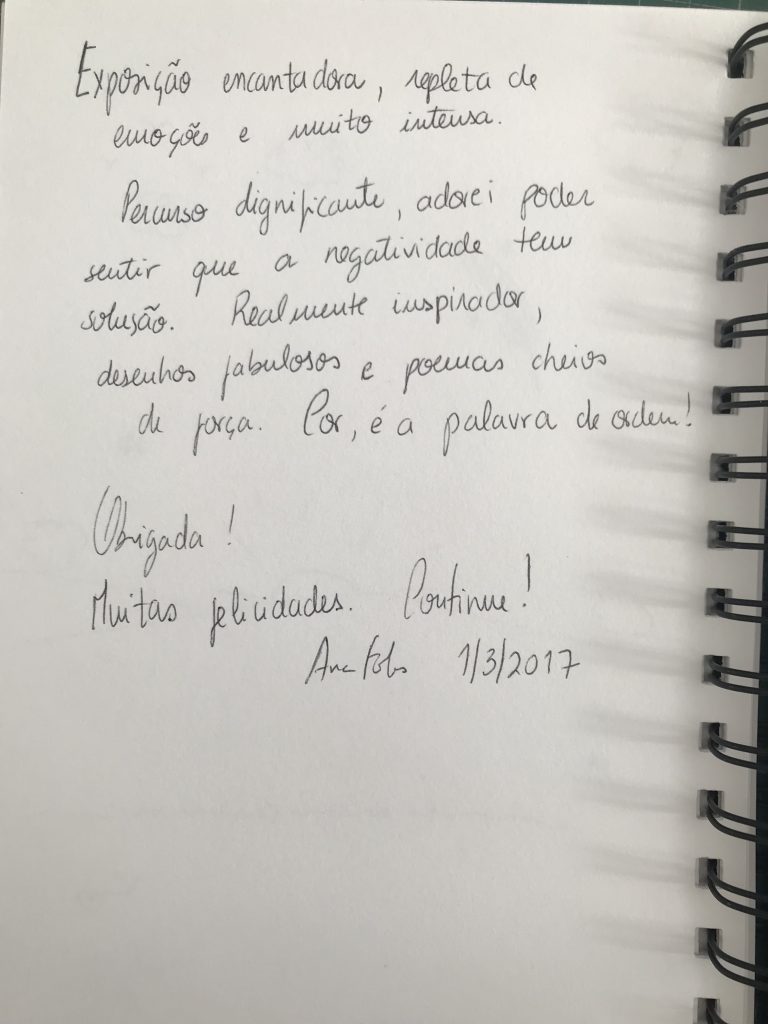 Exposição encantadora, repleta de
emoções e muito intensa.
Percurso dignificante, adorei poder
sentir que a negatividade tem
solução. Realmente inspirador,
desenhos fabulosos e poemas cheios
de força. Cor, é a palavra de ordem!
Obrigada!
Muitas felicidades. Continue!
Ana 1/3/2017